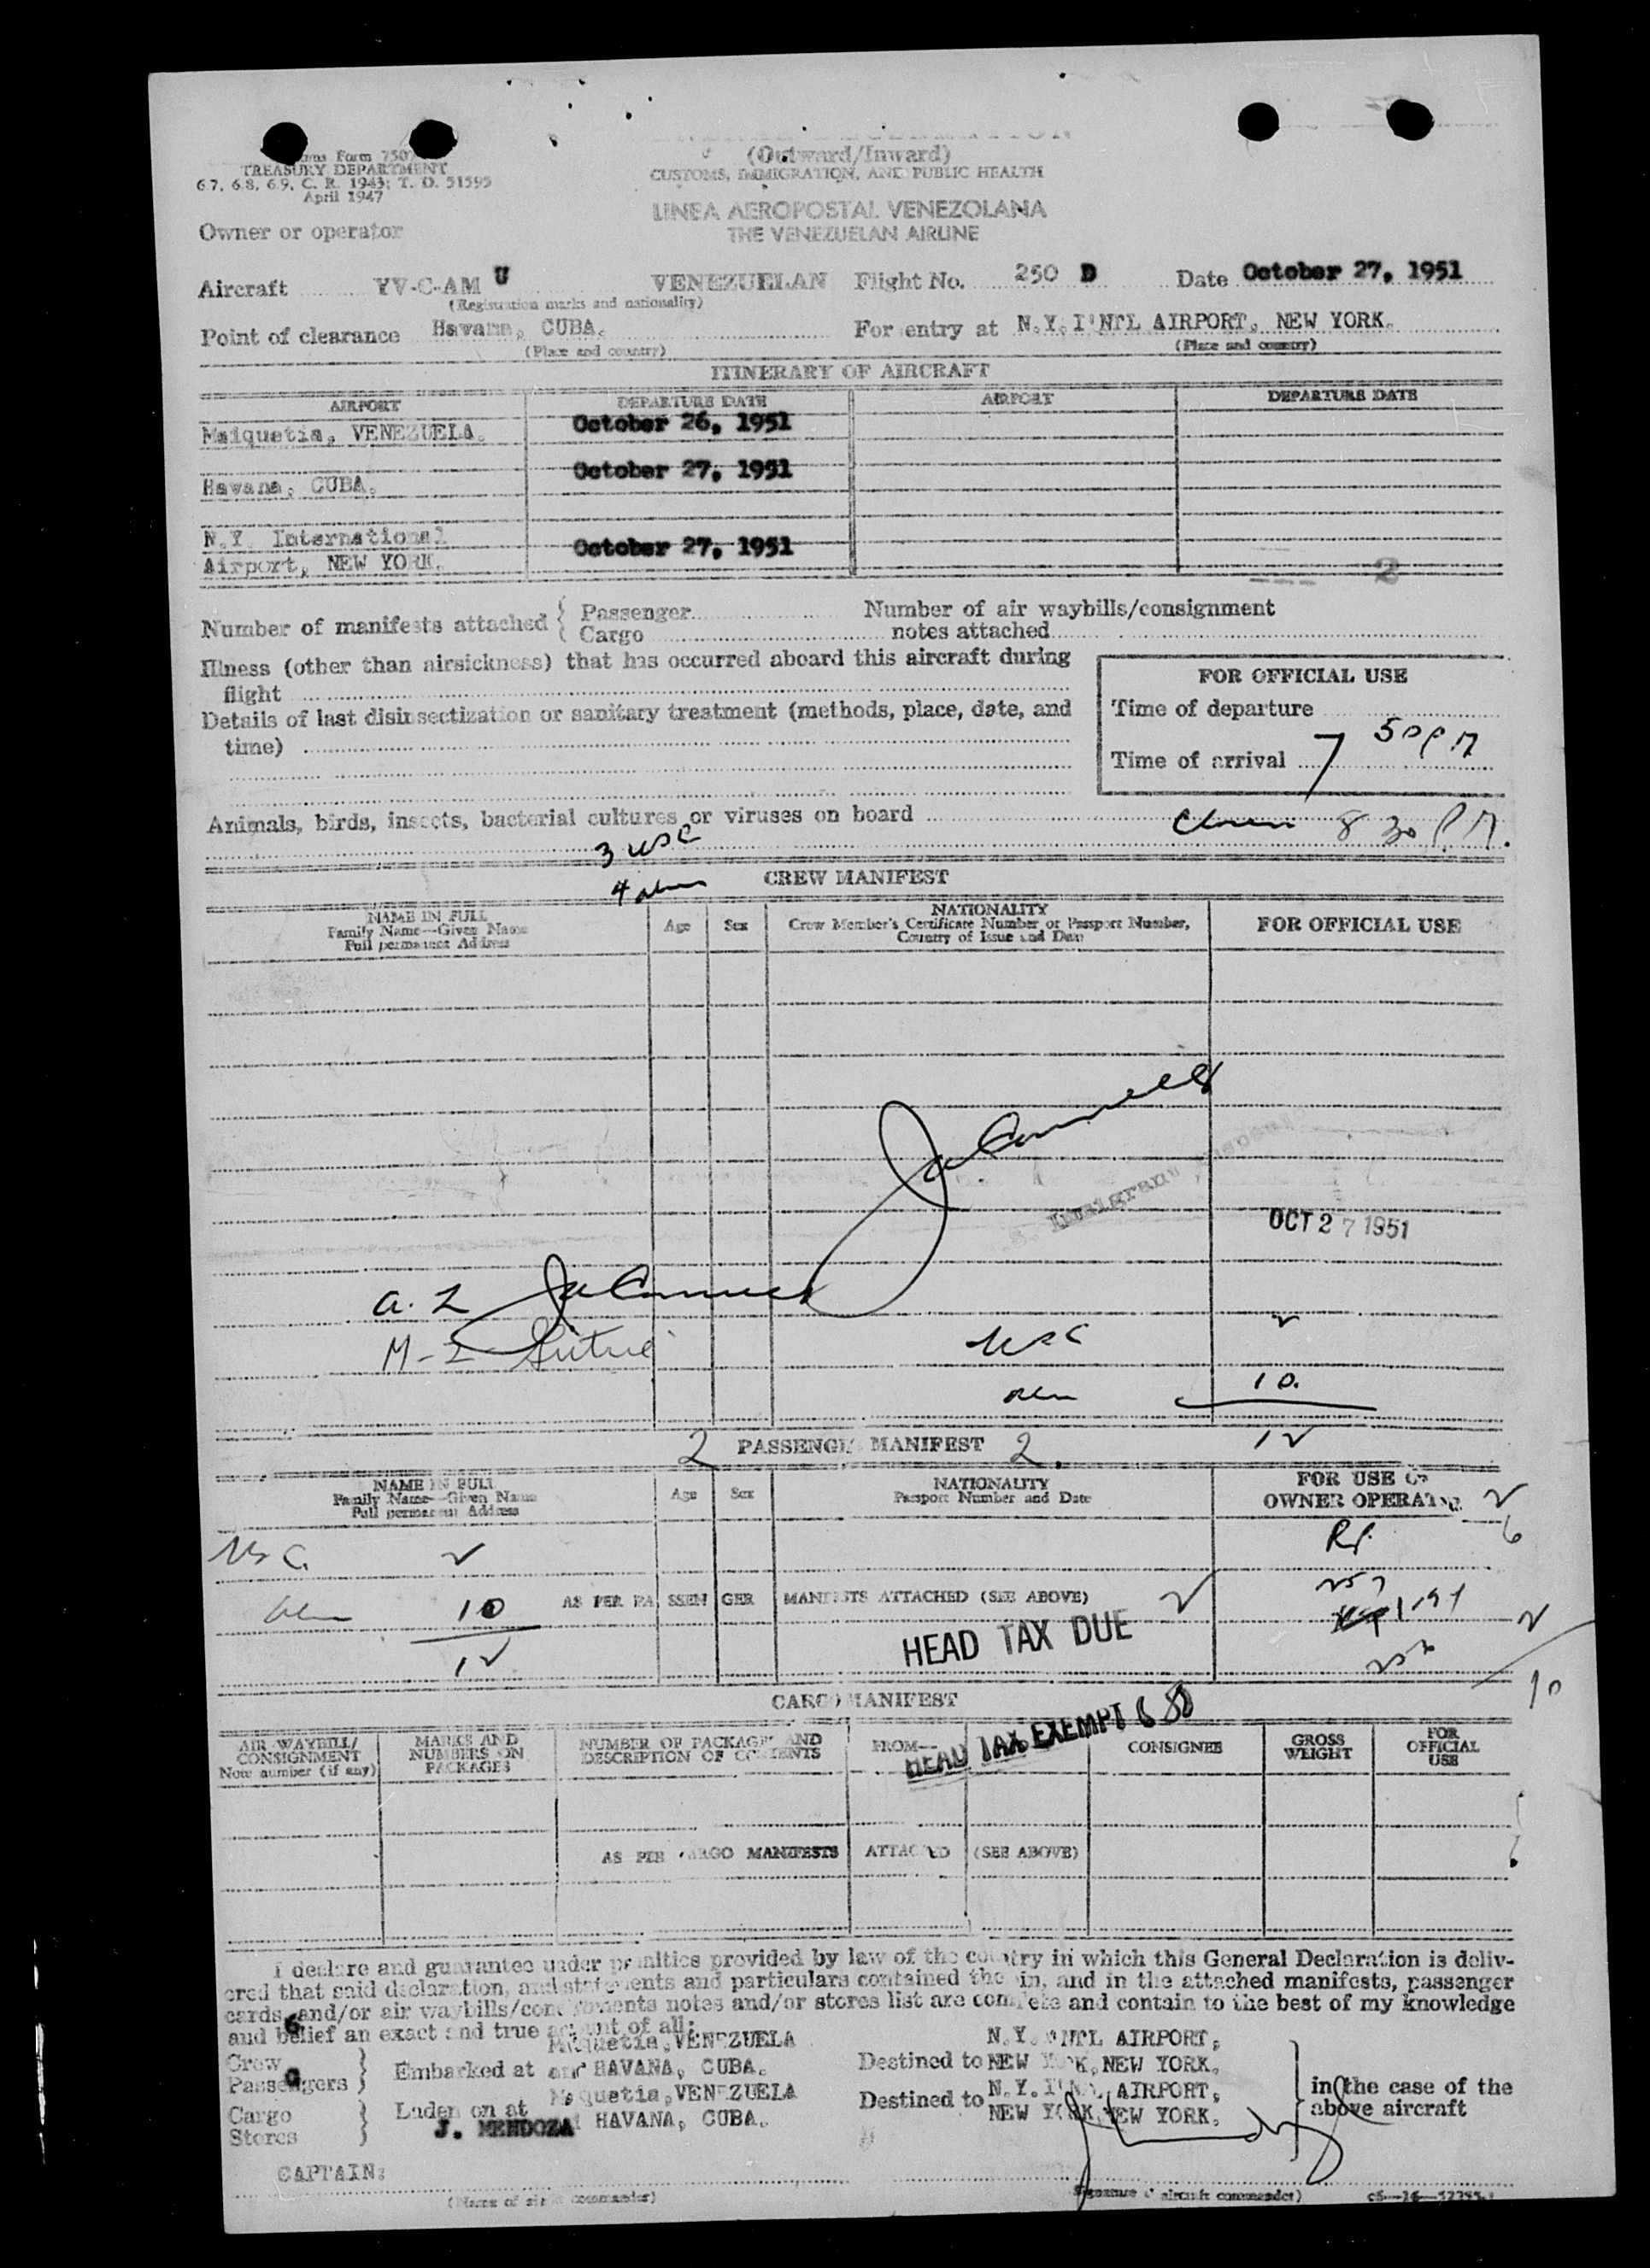 Form 750
TREASURY DEPARTMENT
6.7, 6.8, 6.9, C. R. 1943; T. D. 51595
April 1947
(Outward/Inward)
CUSTOMS, IMMIGRATION, AND PUBLIC HEALTH
LINEA AEROPOSTAL VENEZOLANA
THE VENEZUELAN AIRLINE
Owner or operator
Aircraft YV-C-AM U VENEZUELAN Flight No. 250 D Date October 27, 1951
(Registration marks and nationality)
Point of clearance Havana, CUBA. For entry at N.Y. I'NTL AIRPORT, NEW YORK.
(Place and country) (Place and country)
ITINERARY OF AIRCRAFT
AIRPORT DEPARTURE DATE AIRPORT DEPARTURE DATE
Maiquetia, VENEZUELA. October 26, 1951
Havana, CUBA. October 27, 1951
N.Y. International
Airport, NEW YORK. October 27, 1951
2
Number of manifests attached { Passenger Number of air waybills/consignment
Cargo notes attached
Illness (other than airsickness) that has occurred aboard this aircraft during
flight
Details of last disinsectization or sanitary treatment (methods, place, date, and
time)
FOR OFFICIAL USE
Time of departure
Time of arrival 7 50 PM
Animals, birds, insects, bacterial cultures or viruses on board
8 30 P.M.
3 USC
4
CREW MANIFEST
NAME IN FULL Age Sex NATIONALITY FOR OFFICIAL USE
Family Name—Given Name Crew Member's Certificate Number or Passport Number,
Full permanent Address Country of Issue and Date
OCT 27 1951
USC 2
10.
12
2 PASSENGER MANIFEST 2.
NAME IN FULL Age Sex NATIONALITY FOR USE OF
Family Name—Given Name Passport Number and Date OWNER OPERATOR
Full permanent Address
USC. 2
10 AS PER PASSENGER MANIFESTS ATTACHED (SEE ABOVE)
12
HEAD TAX DUE
2
6
2
10
CARGO MANIFEST
HEAD TAX EXEMPT
AIR WAYBILL/ MARKS AND NUMBER OF PACKAGES AND FROM— CONSIGNEE GROSS FOR
CONSIGNMENT NUMBERS ON DESCRIPTION OF CONTENTS WEIGHT OFFICIAL
Note number (if any) PACKAGES USE
AS PER CARGO MANIFESTS ATTACHED (SEE ABOVE)
I declare and guarantee under penalties provided by law of the country in which this General Declaration is deliv-
ered that said declaration, and statements and particulars contained therein, and in the attached manifests, passenger
cards and/or air waybills/consignments notes and/or stores list are complete and contain to the best of my knowledge
and belief an exact and true account of all:
Crew } Embarked at Maiquetia, VENEZUELA Destined to N.Y. INTL AIRPORT,
Passengers and HAVANA, CUBA. NEW YORK, NEW YORK. in the case of the
Cargo } Laden on at Maiquetia, VENEZUELA Destined to N.Y. I'NTL AIRPORT, above aircraft
Stores HAVANA, CUBA. NEW YORK, NEW YORK.
J. MENDOZA
CAPTAIN:
(Name of aircraft commander) (Signature of aircraft commander)